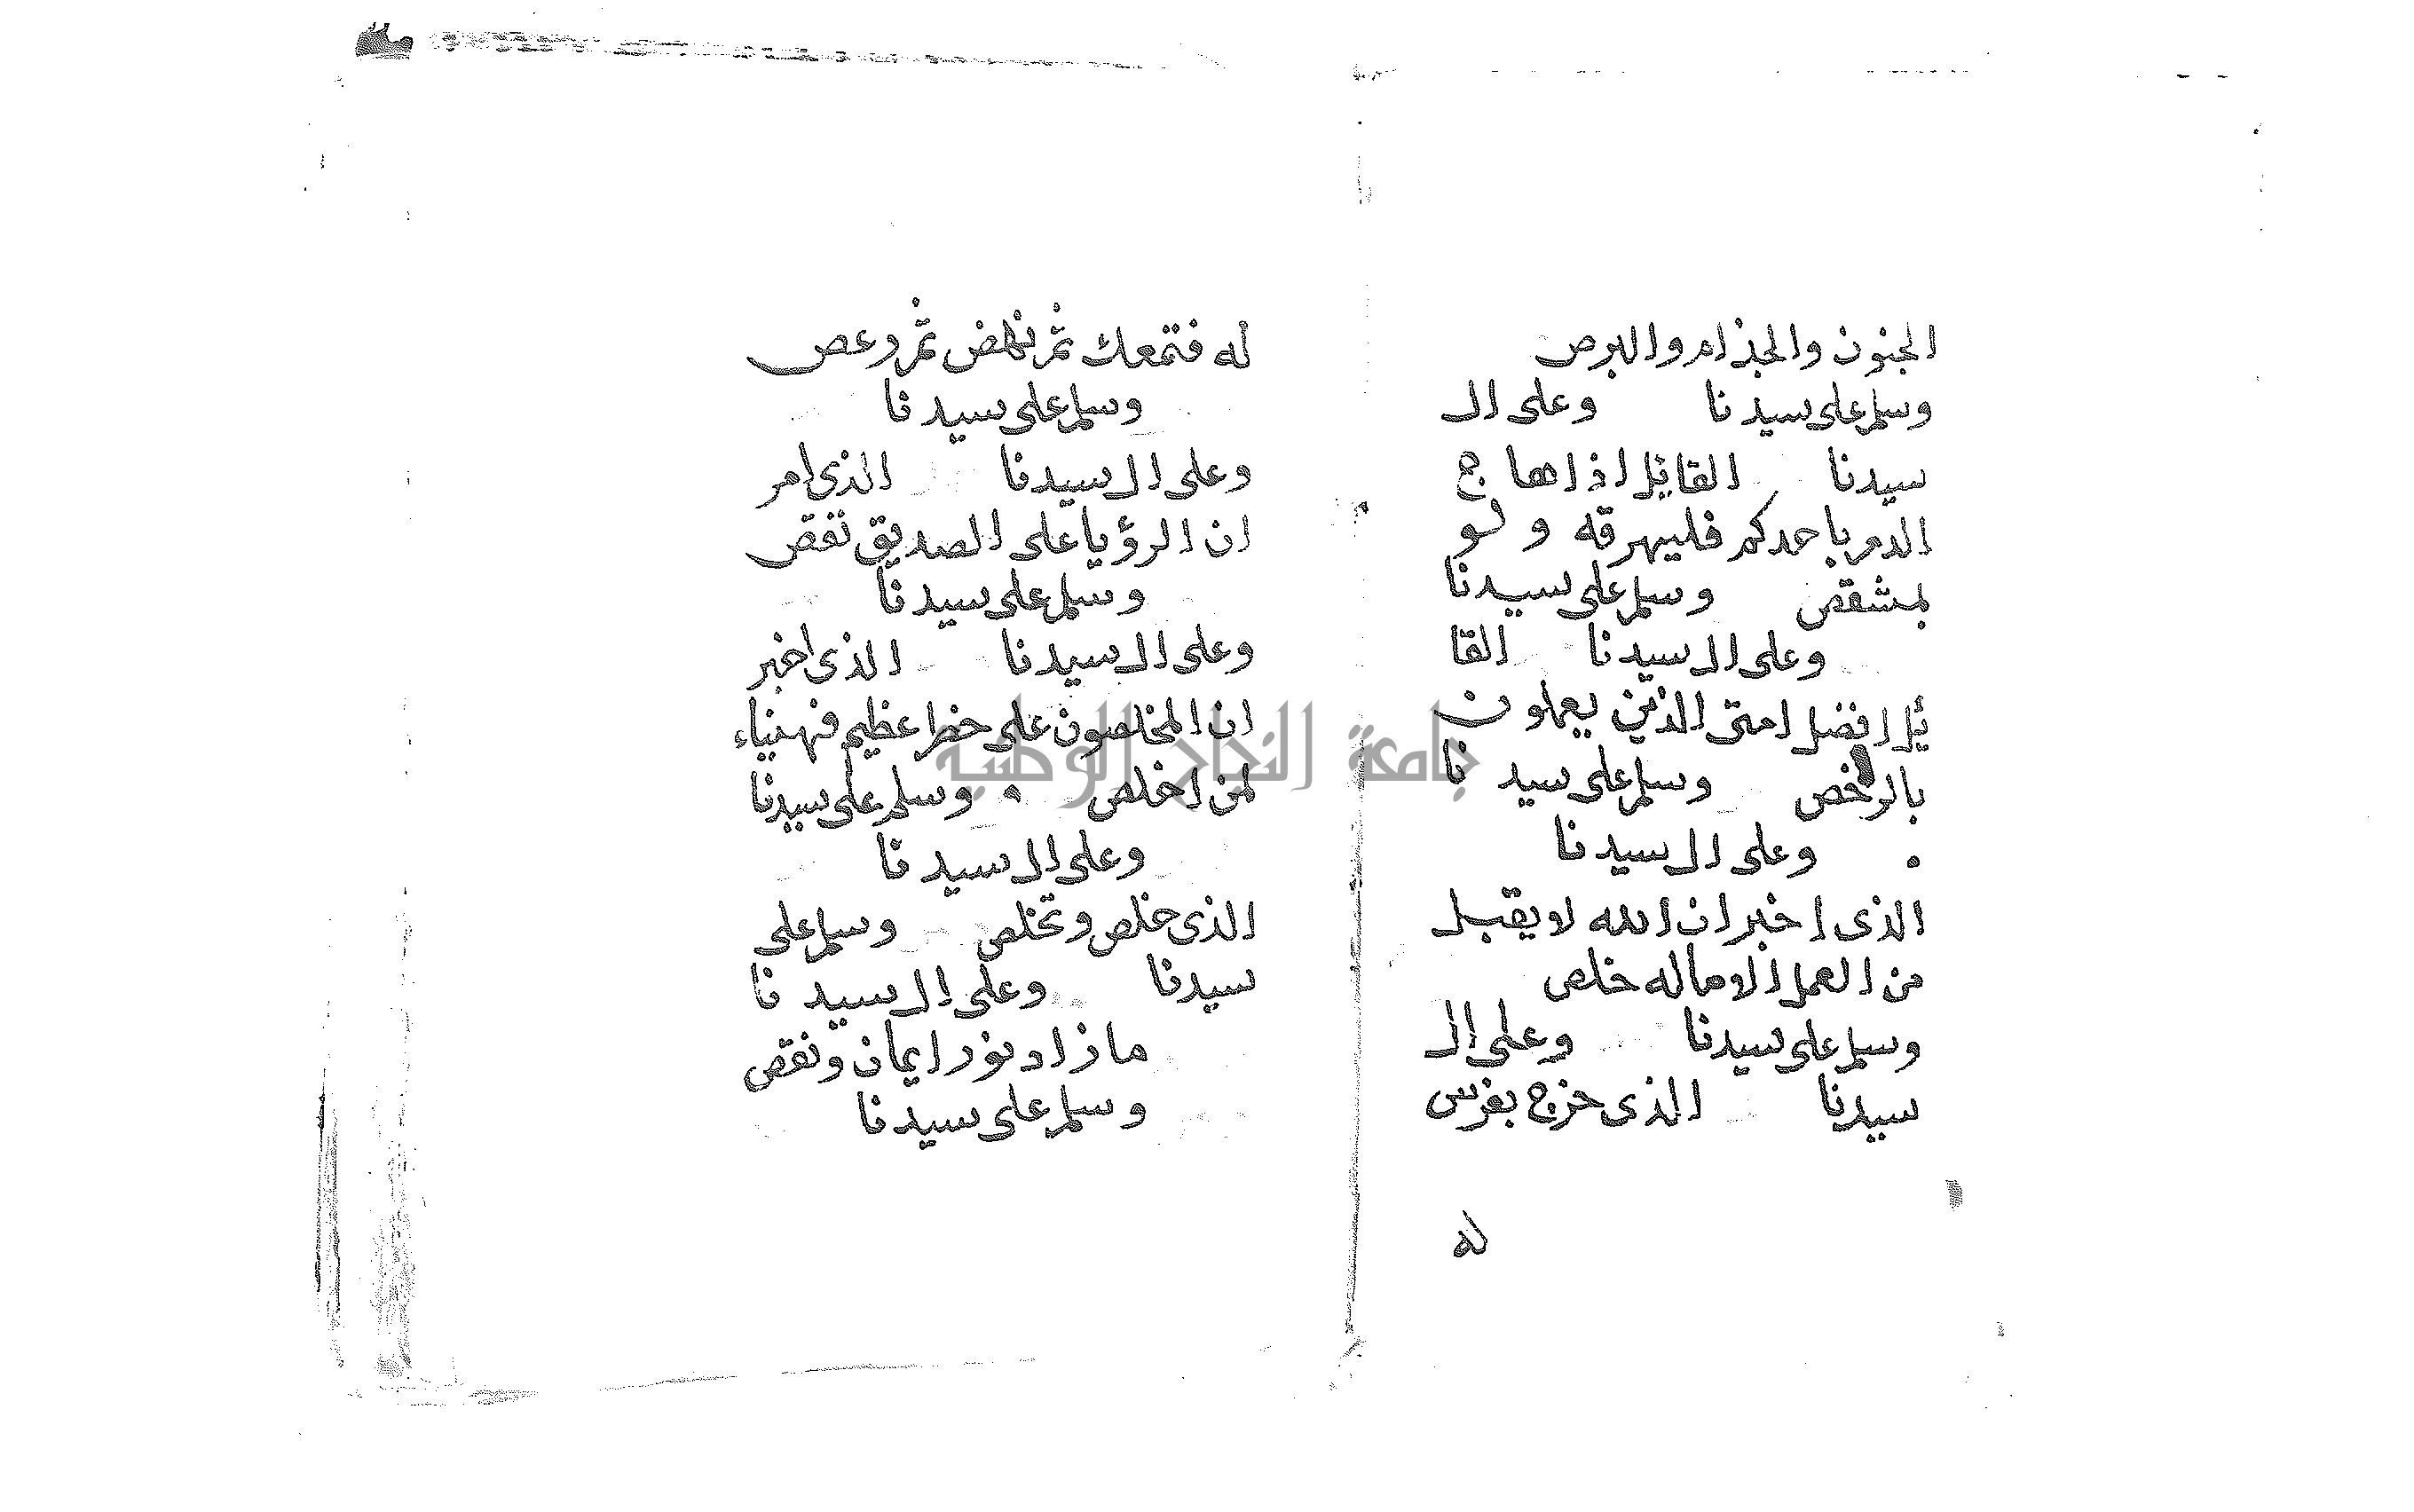 الجنون والجذام والبرص
وسلم على سيدنا وعلى ال
سيدنا القايل اذا هاج
الدم باحدكم فليهرقه ولو
بمشقص وسلم على سيدنا
وعلى ال سيدنا القا
ئل افضل امتى الذين يعملون
بالرخص وسلم على سيدنا
وعلى ال سيدنا
الذى اخبر ان الله لا يقبل
من العمل الا ما له خلص
وسلم على سيدنا وعلى ال
سيدنا الذى خرج بفرس
له
له فتمعك ثم نهض ثم رعص
وسلم على سيدنا
وعلى ال سيدنا الذى امر
ان الرؤيا على الصديق تقص
وسلم على سيدنا
وعلى ال سيدنا الذى اخبر
ان المخلصون على خطر عظيم فهنياء
لمن اخلص وسلم على سيدنا
وعلى ال سيدنا
الذى خلص وتخلص وسلم على
سيدنا وعلى ال سيدنا
ما زاد نور ايمان ونقص
وسلم على سيدنا
جامعة النجاح الوطنية